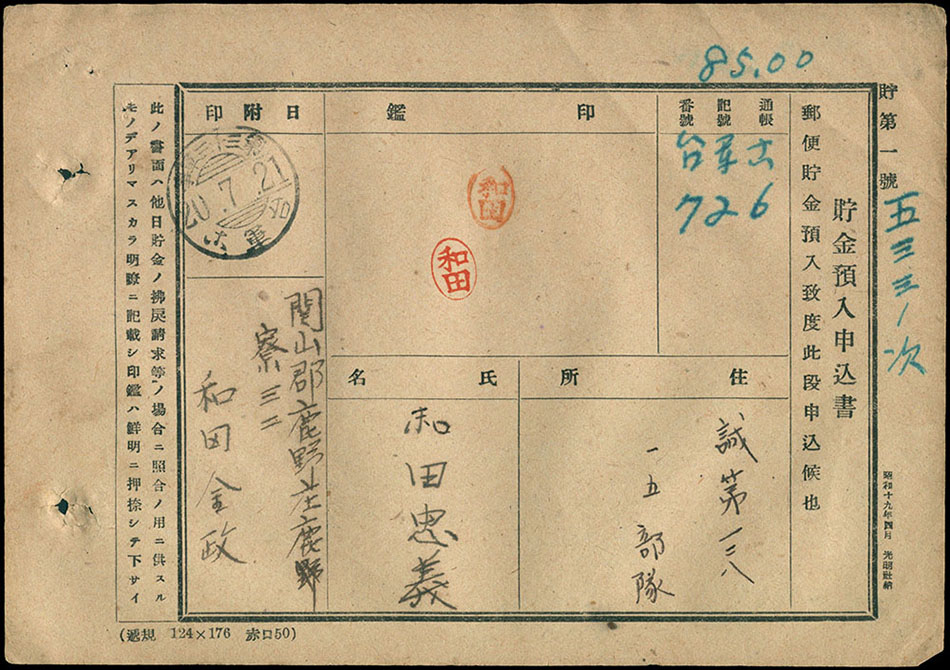 85.00
貯第一號
五三三八次
貯金預入申込書
郵便貯金預入致度此段申込候也
昭和十九年四月
通帳
記號
番號
726
印鑑
和田
和田
日附印
20.7.21
住所
誠第一三八
一五部隊
氏名
和田忠義
関山郡鹿野庄鹿野
寮三二
和田金政
此ノ書面ハ他日貯金ノ拂戻請求等ノ場合ニ照合ノ用ニ供スル
モノデアリマスカラ明瞭ニ記載シ印鑑ハ鮮明ニ押捺シテ下サイ
(遞規 124×176 赤口50)